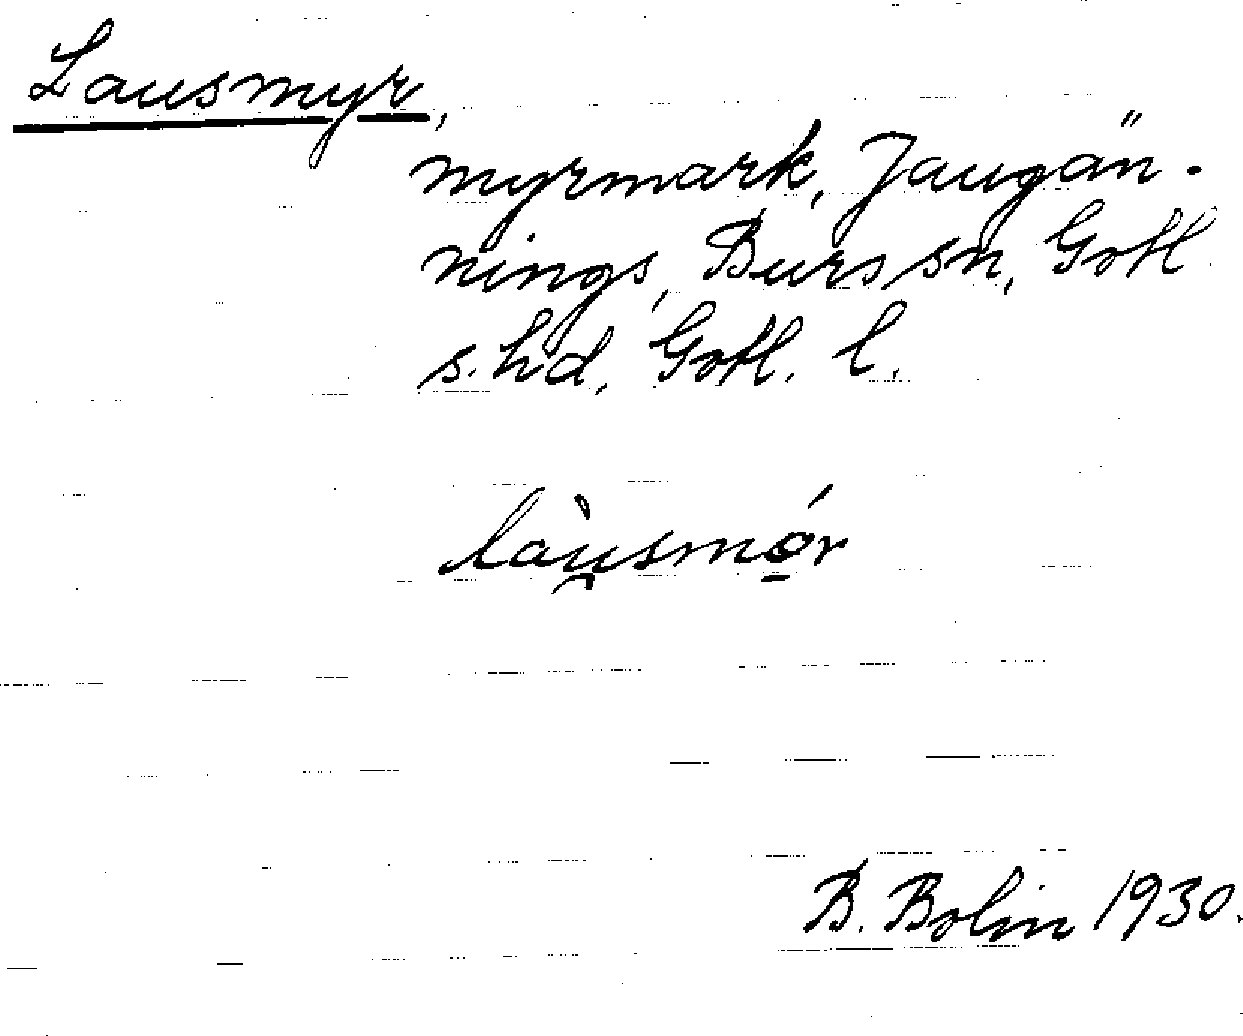 Lausmyr,
myrmark, Jaugän-
nings, Burs sn, Gotl.
s. hd, Gotl. l.
làu̯smǫ́r
B. Bolin 1930.